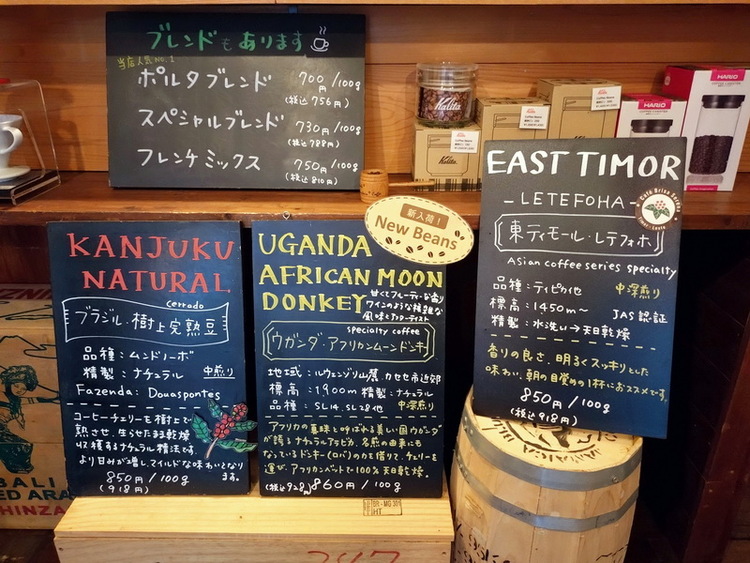 ブレンドもあります
当店人気No.1
ポルタブレンド 700円/100g
(税込756円)
スペシャルブレンド 730円/100g
(税込788円)
フレンチミックス 750円/100g
(税込810円)
Kalita
Kalita
HARIO
HARIO
KANJUKU
NATURAL
cerrado
ブラジル・樹上完熟豆
品種:ムンドノーボ
精製:ナチュラル 中煎り
Fazenda: Douaspontes
コーヒーチェリーを樹上で
熟させ、生らせたまま乾燥
収穫するナチュラル精法です。
より甘みが増し、マイルドな味わいとなり
ます。
850円/100g
(918円)
新入荷!
New Beans
UGANDA
AFRICAN MOON
DONKEY
甘くてフルーティーな香り
ワインのような複雑な
風味とアフターテイスト
specialty coffee
ウガンダ・アフリカンムーンドンキー
地域:ルウェンゾリ山麓 カセセ市近郊
標高:1900m 精製:ナチュラル
品種:SL14.SL28他 中深煎り
アフリカの真珠とも呼ばれる美しい国ウガンダ
が誇るナチュラルアラビカ。名前の由来にも
なっているドンキー(ロバ)の力を借りて、チェリーを
運び、アフリカンベッドで100%天日乾燥。
(税込928円) 860円/100g
EAST TIMOR
- LETEFOHA -
東ティモール・レテフォホ
Asian coffee series specialty
品種:ティピカ他 中深煎り
標高:1450m〜 JAS認証
精製:水洗い→天日乾燥
香りの良さ、明るくスッキリとした
味わい。朝の目覚めの1杯におススメです。
850円/100g
(税込918円)
BALI
HINZA
BR-MG 301
HT